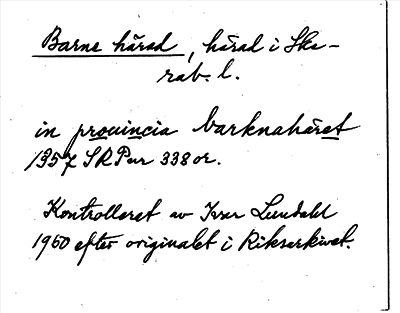 Barne härad, härad i Ska-
rab. l.
in provincia barknahäret
1357 SRPur 338 or.
Kontrollerat av Ivar Lundahl
1960 efter originalet i Riksarkivet.